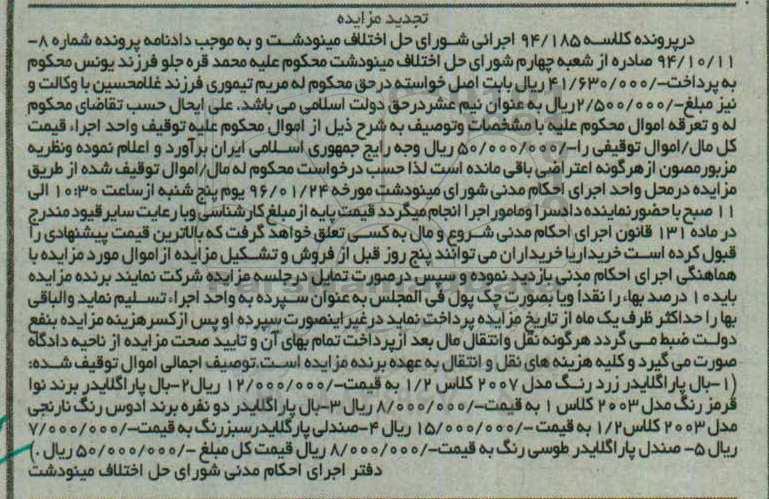 تجدید مزایده
درپرونده کلاسه ۹۴/۱۸۵ اجرائی شورای حل اختلاف مینودشت و به موجب دادنامه پرونده شماره ۸-
۹۴/۱۰/۱۱ صادره از شعبه چهارم شورای حل اختلاف مینودشت محکوم علیه محمد قره جلو فرزند یونس محکوم
به پرداخت-/۴۱/۶۳۰/۰۰۰ ریال بابت اصل خواسته درحق محکوم له مریم تیموری فرزند غلامحسین با وکالت و
نیز مبلغ-/۲/۵۰۰/۰۰۰ریال به عنوان نیم عشردرحق دولت اسلامی می باشد. علی ایحال حسب تقاضای محکوم
له و تعرفه اموال محکوم علیه با مشخصات وتوصیف به شرح ذیل از اموال محکوم علیه توقیف واحد اجراء، قیمت
کل مال/اموال توقیفی را-/۵۰/۰۰۰/۰۰۰ ریال وجه رایج جمهوری اسلامی ایران برآورد و اعلام نموده ونظریه
مزبورمصون ازهرگونه اعتراضی باقی مانده است لذا حسب درخواست محکوم له مال/اموال توقیف شده از طریق
مزایده درمحل واحد اجرای احکام مدنی شورای مینودشت مورخه ۹۶/۰۱/۲۴ یوم پنج شنبه ازساعت ۱۰:۳۰ الی
۱۱ صبح با حضورنماینده دادسرا ومامور اجرا انجام میگردد قیمت پایه از مبلغ کارشناسی وبا رعایت سایر قیود مندرج
در ماده ۱۳۱ قانون اجرای احکام مدنی شروع و مال به کسی تعلق خواهد گرفت که بالاترین قیمت پیشنهادی را
قبول کرده است خریداریا خریداران می توانند پنج روز قبل از فروش و تشکیل مزایده ازاموال مورد مزایده با
هماهنگی اجرای احکام مدنی بازدید نموده و سپس درصورت تمایل درجلسه مزایده شرکت نمایند برنده مزایده
باید۱۰ درصد بهاء را نقدا ویا بصورت چک پول فی المجلس به عنوان سپرده به واحد اجراء تسلیم نماید والباقی
بها را حداکثر ظرف یک ماه از تاریخ مزایده پرداخت نماید درغیراینصورت سپرده او پس ازکسرهزینه مزایده بنفع
دولت ضبط می گردد هرگونه نقل وانتقال مال بعد ازپرداخت تمام بهای آن و تایید صحت مزایده از ناحیه دادگاه
صورت می گیرد و کلیه هزینه های نقل و انتقال به عهده برنده مزایده است.توصیف اجمالی اموال توقیف شده:
(۱-بال پاراگلایدر زرد رنگ مدل ۲۰۰۷ کلاس ۱/۲ به قیمت-/۱۲/۰۰۰/۰۰۰ ریال۲-بال پاراگلایدر برند نوا
قرمز رنگ مدل ۲۰۰۳ کلاس ۱ به قیمت-/۸/۰۰۰/۰۰۰ ریال ۳-بال پاراگلایدر دو نفره برند ادوس رنگ نارنجی
مدل ۲۰۰۳ کلاس۱/۲ به قیمت -/۱۵/۰۰۰/۰۰۰ ریال ۴-صندلی پارگلایدرسبزرنگ به قیمت-/۷/۰۰۰/۰۰۰
ریال ۵- صندل پاراگلایدر طوسی رنگ به قیمت-/۸/۰۰۰/۰۰۰ ریال قیمت کل مبلغ -/۵۰/۰۰۰/۰۰۰ ریال .)
دفتر اجرای احکام مدنی شورای حل اختلاف مینودشت